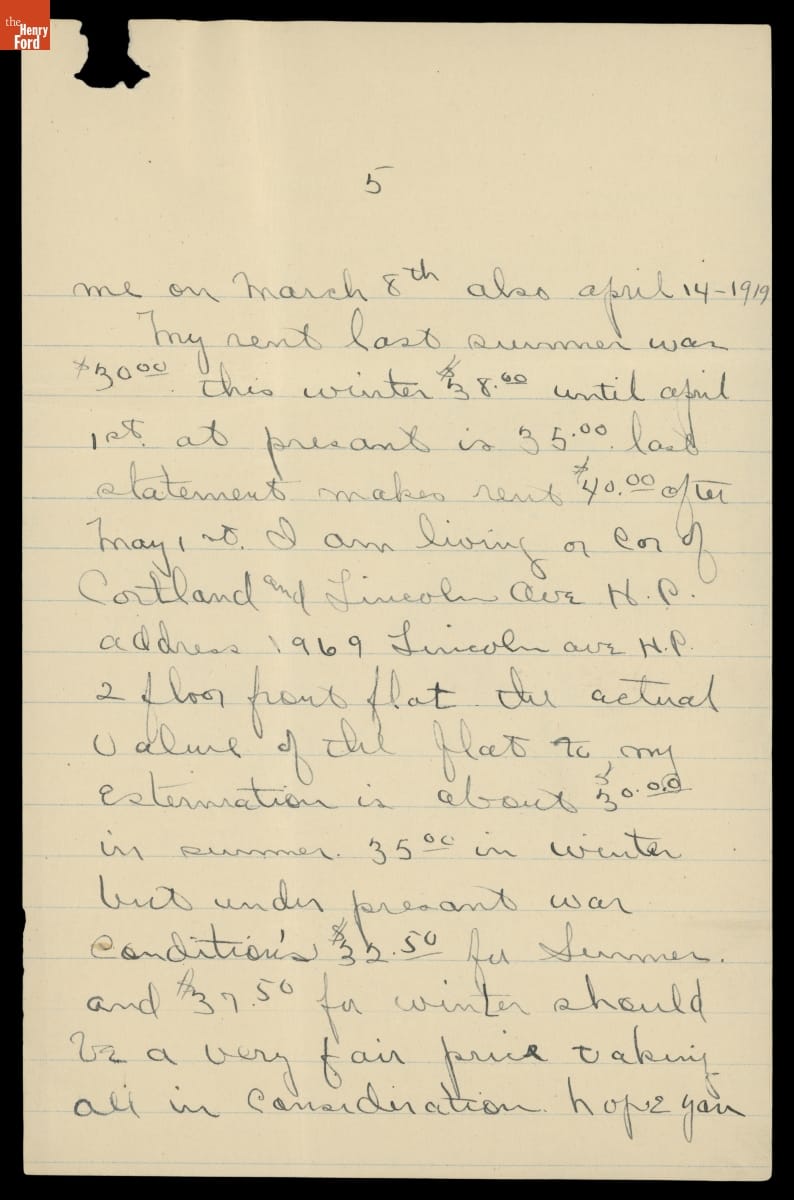 the
Henry
Ford
5
me on March 8th also april 14-1919
My rent last summer was
$30.00. this winter $38.00 until april
1st. at presant is 35.00. last
statement makes rent $40.00 after
May 1st. I am living or Cor of
Cortland and Lincoln Ave H.P.
address 1969 Lincoln ave H.P.
2 floor front flat. the actual
value of the flat to my
Estemration is about $30.00
in summer. 35.00 in winter
but under presant war
Condition's $32.50 for Summer.
and $37.50 for winter should
be a very fair price taking
all in Consideration. hope you